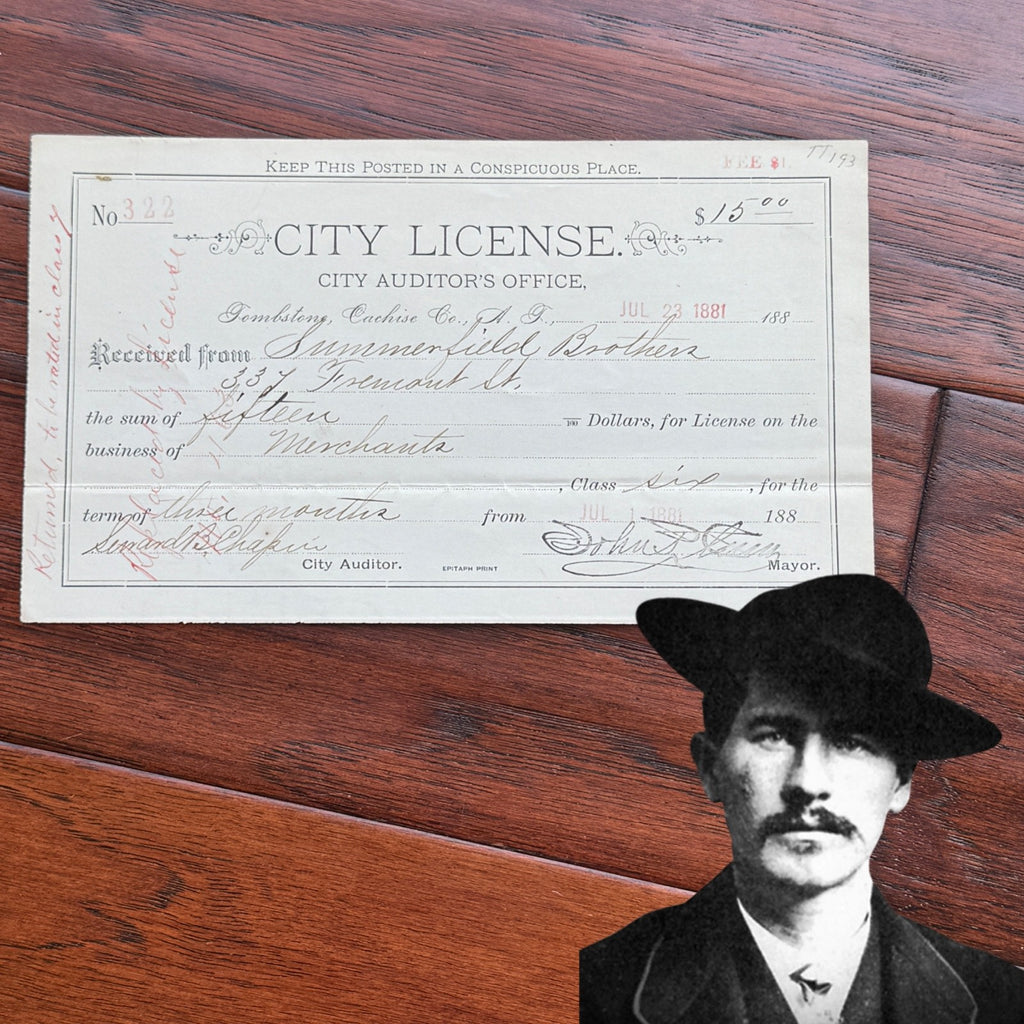 KEEP THIS POSTED IN A CONSPICUOUS PLACE.
FEE $1. TT193
No 322
$15 00
CITY LICENSE.
CITY AUDITOR'S OFFICE,
Tombstone, Cachise Co., A. T., JUL 23 1881 188
Received from Summerfield Brothers
337 Fremont St.
the sum of fifteen 100 Dollars, for License on the
business of Merchants
, Class six , for the
term of three months from JUL 1 1881 188
City Auditor.
EPITAPH PRINT
Mayor.
Returned, to be rated in class 7
license